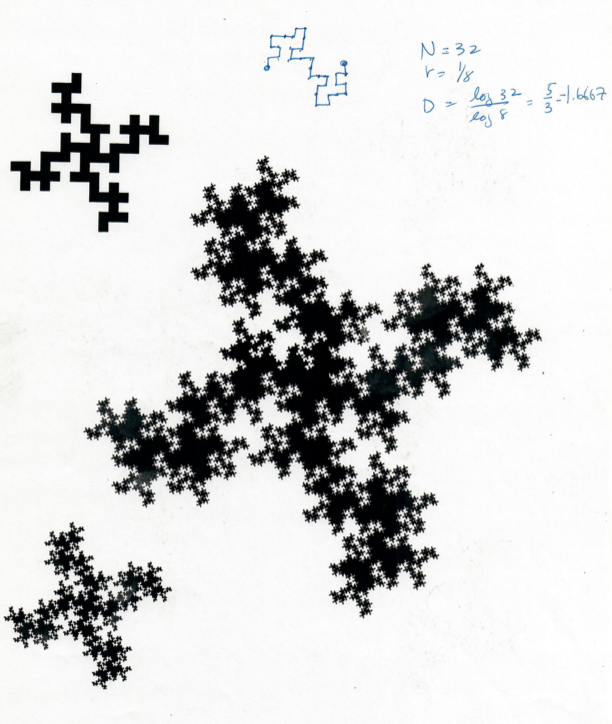 N = 32
r = 1/8
D = log 32 / log 8 = 5/3 = 1.6667